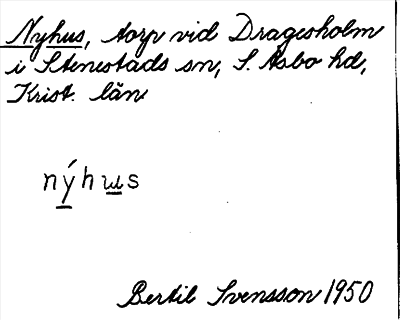 Nyhus, torp vid Dragesholm
i Stenestads sn, S. Åsbo hd,
Krist. län
nýhɯs
Bertil Svensson 1950